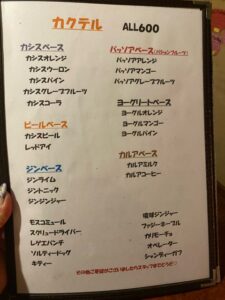 カクテル ALL600
カシスベース
カシスオレンジ
カシスウーロン
カシスパイン
カシスグレープフルーツ
カシスコーラ
ビールベース
カシスビール
レッドアイ
ジンベース
ジンライム
ジントニック
ジンジンジャー
モスコミュール
スクリュードライバー
レゲエパンチ
ソルティードッグ
キティー
パッソアベース(パッションフルーツ)
パッソアオレンジ
パッソアマンゴー
パッソアグレープフルーツ
ヨーグリートベース
ヨーグルオレンジ
ヨーグルマンゴー
ヨーグルパイン
カルアベース
カルアミルク
カルアコーヒー
琉球ジンジャー
ファジーネーブル
カリモーチョ
オペレーター
シャンディーガフ
その他ご要望がございましたらスタッフまでどうぞ